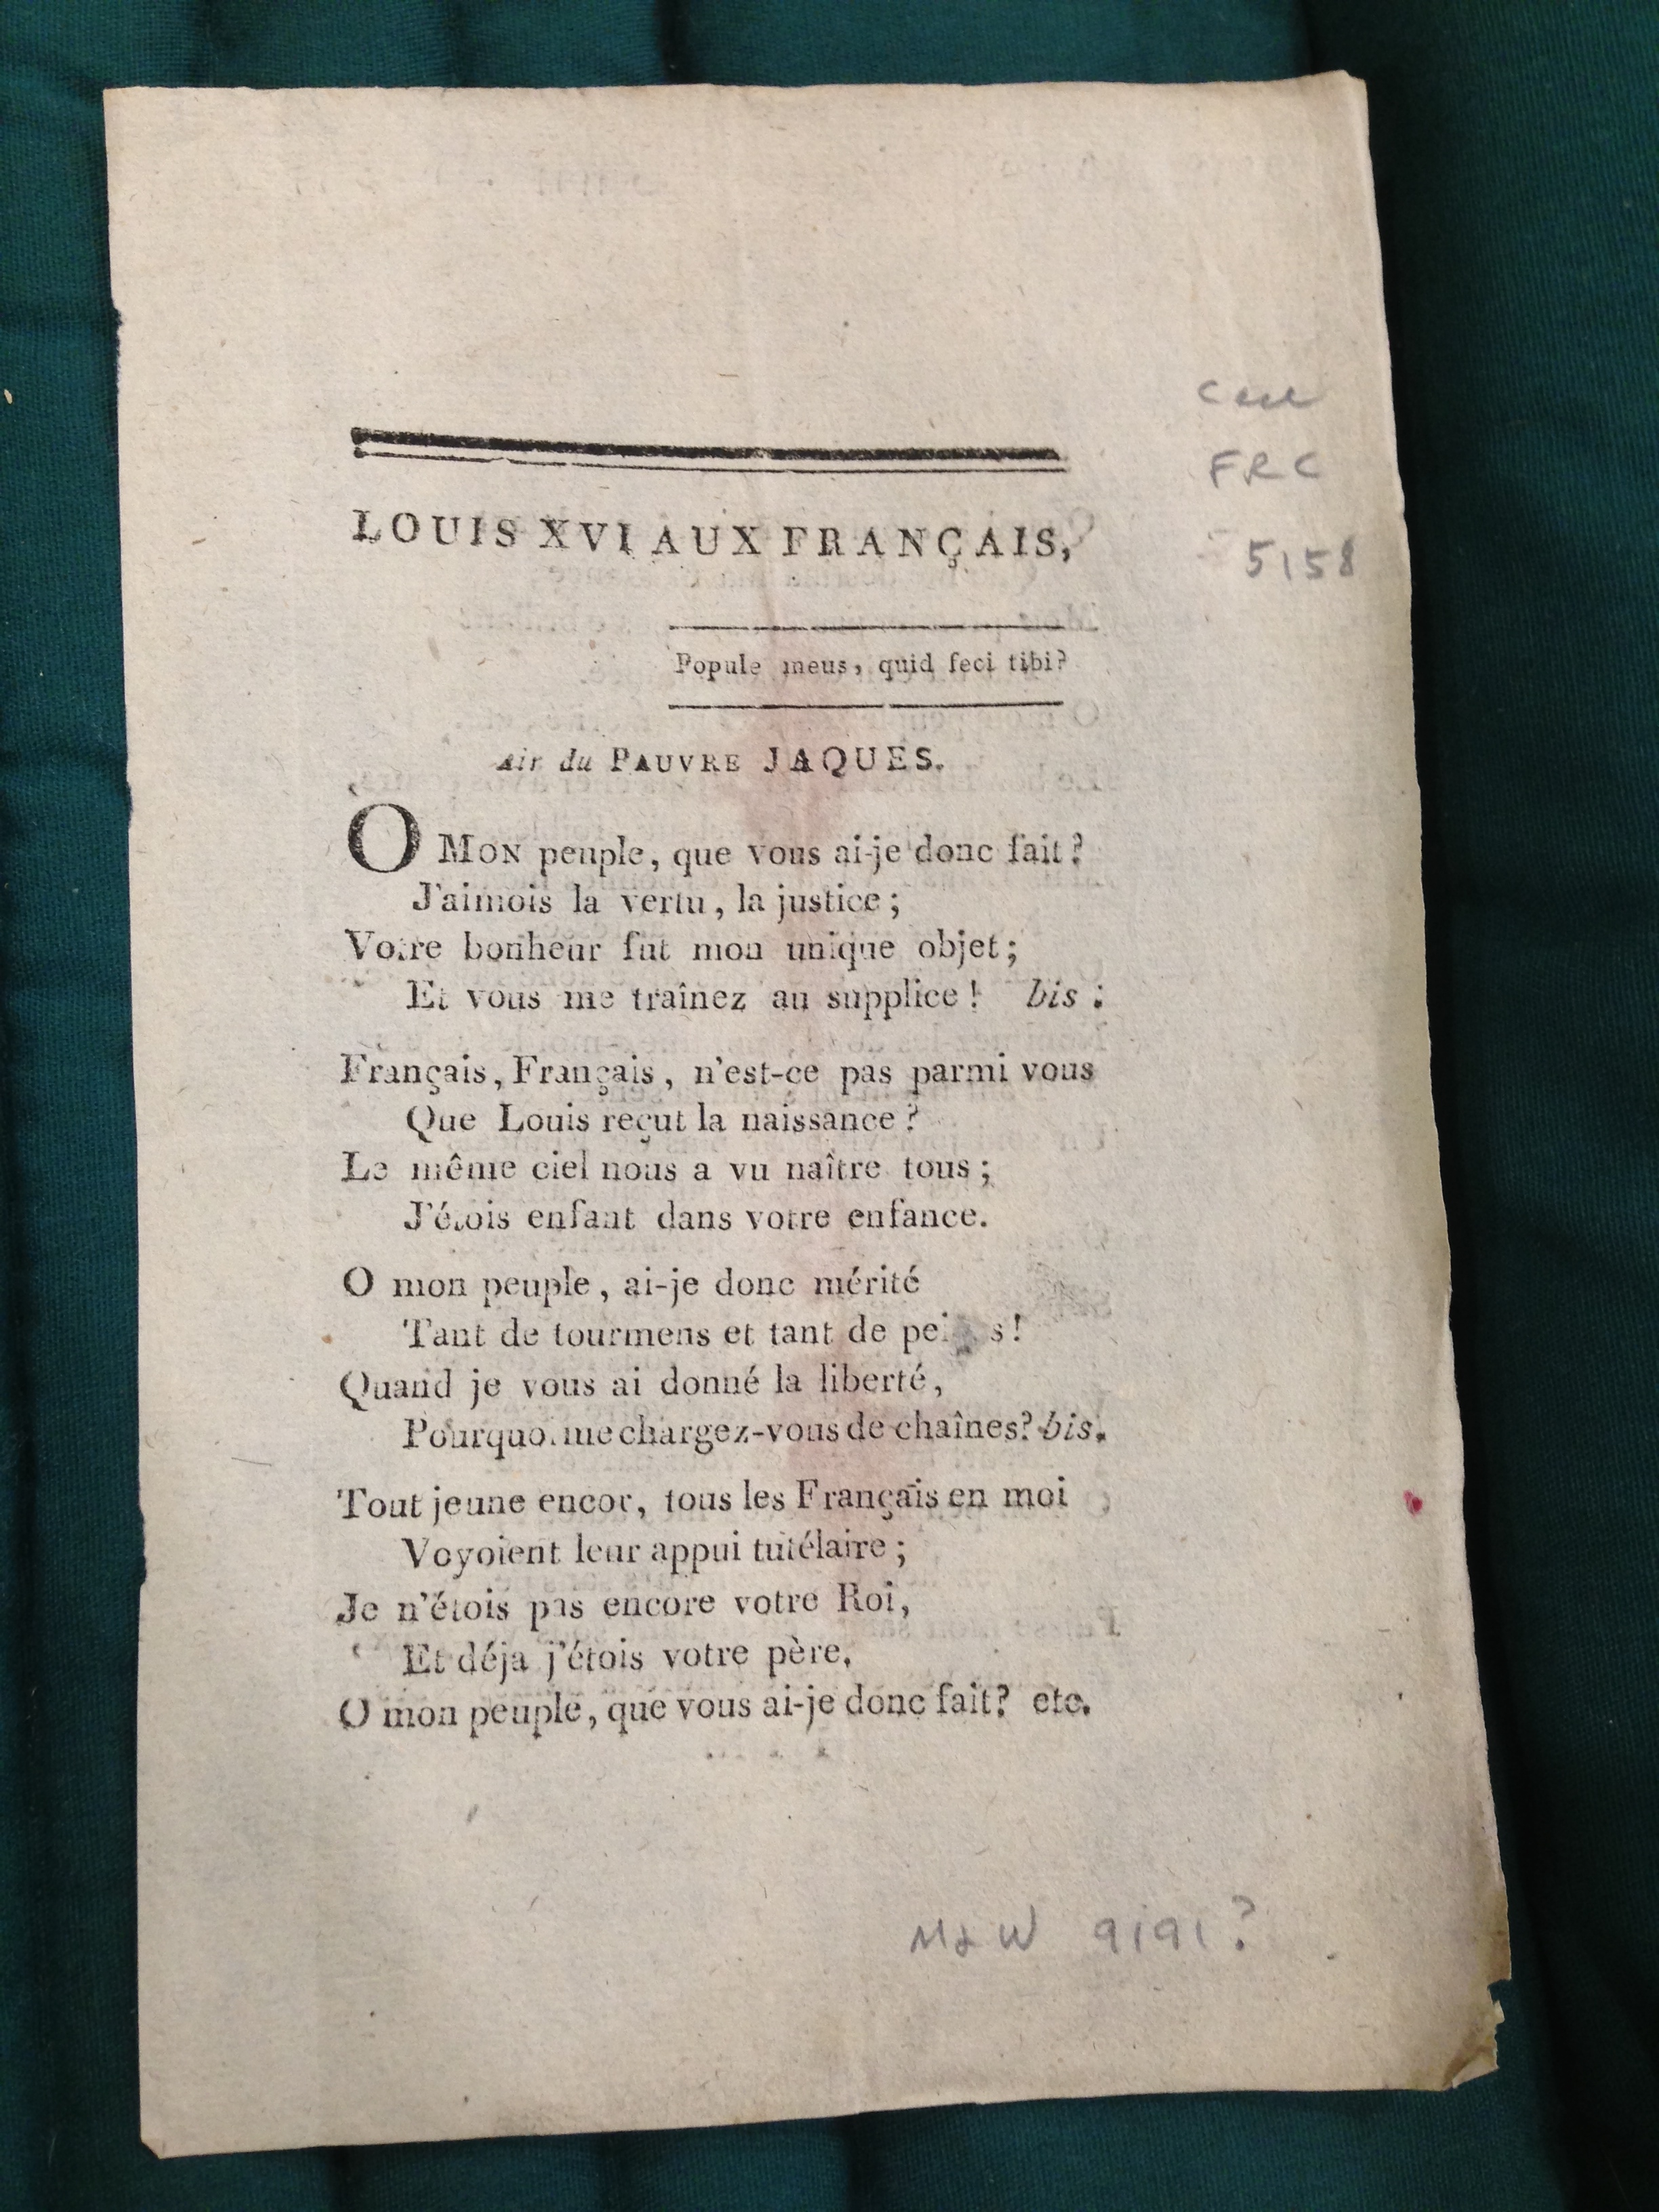 Case
FRC
5158
LOUIS XVI AUX FRANÇAIS,
Popule meus, quid feci tibi?
Air du PAUVRE JAQUES.
O MON peuple, que vous ai-je donc fait?
J'aimois la vertu, la justice;
Votre bonheur fut mon unique objet;
Et vous me traînez au supplice! bis:
Français, Français, n'est-ce pas parmi vous
Que Louis reçut la naissance?
Le même ciel nous a vu naître tous;
J'étois enfant dans votre enfance.
O mon peuple, ai-je donc mérité
Tant de tourmens et tant de
Quand je vous ai donné la liberté,
Pourquoi me chargez-vous de chaînes? bis.
Tout jeune encor, tous les Français en moi
Voyoient leur appui tutélaire;
Je n'étois pas encore votre Roi,
Et déja j'étois votre père,
O mon peuple, que vous ai-je donc fait? etc.
M&W 9191?